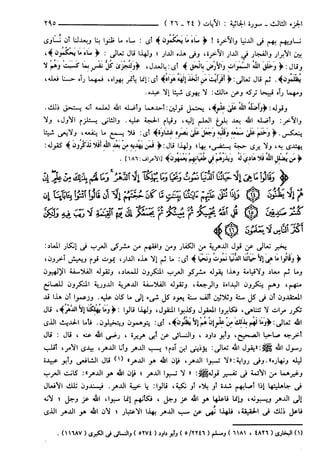 الجزء الثالث ـ سورة الجاثية : الآيات ( ٢٤ ـ ٢٦ ) ٢٩٥
نساويهم بهم في الدنيا والآخرة ! ﴿ ساء ما يحكمون ﴾ أي : ساء ما ظنوا بنا وبعدلنا أن نُساوي
بين الأبرار والفجار في الدار الآخرة، وفي هذه الدار ؛ ولهذا قال تعالى : ﴿ ساء ما يحكمون ﴾،
وقال : ﴿ وخلق الله السموات والأرض بالحق ﴾ أي : بالعدل، ﴿ ولتجزى كل نفس بما كسبت وهم لا
يظلمون ﴾. ثم قال تعالى: ﴿ أفرأيت من اتخذ إلهه هواه ﴾ أي: إنما يأتمر بهواه، فمهما رآه حسنا فعله،
ومهما رآه قبيحا تركه وعن مالك: لا يهوى شيئا إلا عبده.
وقوله: ﴿ وأضله الله على علم ﴾، يحتمل قولين: أحدهما وأضله الله لعلمه أنه يستحق ذلك.
والآخر: وأضله الله بعد بلوغ العلم إليه، وقيام الحجة عليه. والثاني يستلزم الأول، ولا
ينعكس. ﴿ وختم على سمعه وقلبه وجعل على بصره غشاوة ﴾ أي: فلا يسمع ما ينفعه، ولا يعي شيئا
يهتدي به، ولا يرى حجة يستضيء بها ولهذا قال: ﴿ فمن يهديه من بعد الله أفلا تذكرون ﴾ كقوله:
﴿ من يضلل الله فلا هادي له ويذرهم في طغيانهم يعمهون ﴾ (الأعراف: ١٨٦) .
﴿ وقالوا ما هي إلا حياتنا الدنيا نموت ونحيا وما يهلكنا إلا الدهر وما لهم بذلك من علم إن
هم إلا يظنون ﴿٢٤﴾ وإذا تتلى عليهم آياتنا بينات ما كان حجتهم إلا أن قالوا ائتوا بآبائنا إن
كنتم صادقين ﴿٢٥﴾ قل الله يحييكم ثم يميتكم ثم يجمعكم إلى يوم القيامة لا ريب فيه ولكن أكثر
الناس لا يعلمون ﴿٢٦﴾
يخبر تعالى عن قول الدهرية من الكفار ومن وافقهم من مشركي العرب في إنكار المعاد:
﴿ وقالوا ما هي إلا حياتنا الدنيا نموت ونحيا ﴾ أي: ما ثم إلا هذه الدار، يموت قوم ويعيش آخرون،
وما ثم معاد ولا قيامة وهذا يقوله مشركو العرب المنكرون للمعاد، وتقوله الفلاسفة الإلهيون
منهم، وهم ينكرون البداءة والرجعة، وتقوله الفلاسفة الدهرية الدورية المنكرون للصانع
المعتقدون أن في كل ستة وثلاثين ألف سنة يعود كل شيء إلى ما كان عليه. وزعموا أن هذا قد
تكرر مرات لا تتناهى، فكابروا المعقول وكذبوا المنقول، ولهذا قالوا : ﴿ وما يهلكنا إلا الدهر ﴾، قال
الله تعالى: ﴿ وما لهم بذلك من علم إن هم إلا يظنون ﴾، أي: يتوهمون ويتخيلون. فأما الحديث الذي
أخرجه صاحبا الصحيح، وأبو داود ، والنسائي عن أبي هريرة ، رضي الله عنه ، قال : قال
رسول الله ﷺ : «يقول الله تعالى: يؤذيني ابن آدم؛ يسب الدهر وأنا الدهر، بيدي الأمر، أقلب
ليله ونهاره». وفي رواية: «لا تسبوا الدهر، فإن الله هو الدهر» (١) قال الشافعي وأبو عبيدة
وغيرهما من الأئمة في تفسير قوله ﷺ: « لا تسبوا الدهر ؛ فإن الله هو الدهر»: كانت العرب
في جاهليتها إذا أصابهم شدة أو بلاء أو نكبة، قالوا: يا خيبة الدهر. فيسندون تلك الأفعال
إلى الدهر ويسبونه، وإنما فاعلها هو الله عز وجل ، فكأنهم إنما سبوا، الله عز وجل ؛ لأنه
فاعل ذلك في الحقيقة، فلهذا نُهي عن سب الدهر بهذا الاعتبار ؛ لأن الله هو الدهر الذي
(١) البخاري ( ٤٨٢٦ ، ٦١٨١ ) ومسلم (٢٢٤٦/ ٥) وأبو داود (٥٢٧٤) والنسائي في الكبرى (١١٦٨٧) .